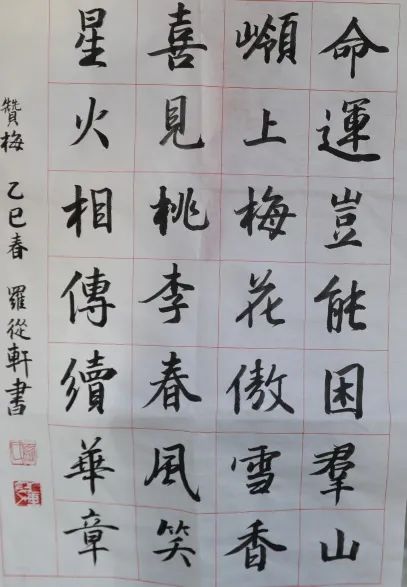 命運豈能困羣山
嶺上梅花傲雪香
喜見桃李春風笑
星火相傳續華章
贊梅 乙巳春 羅從軒書